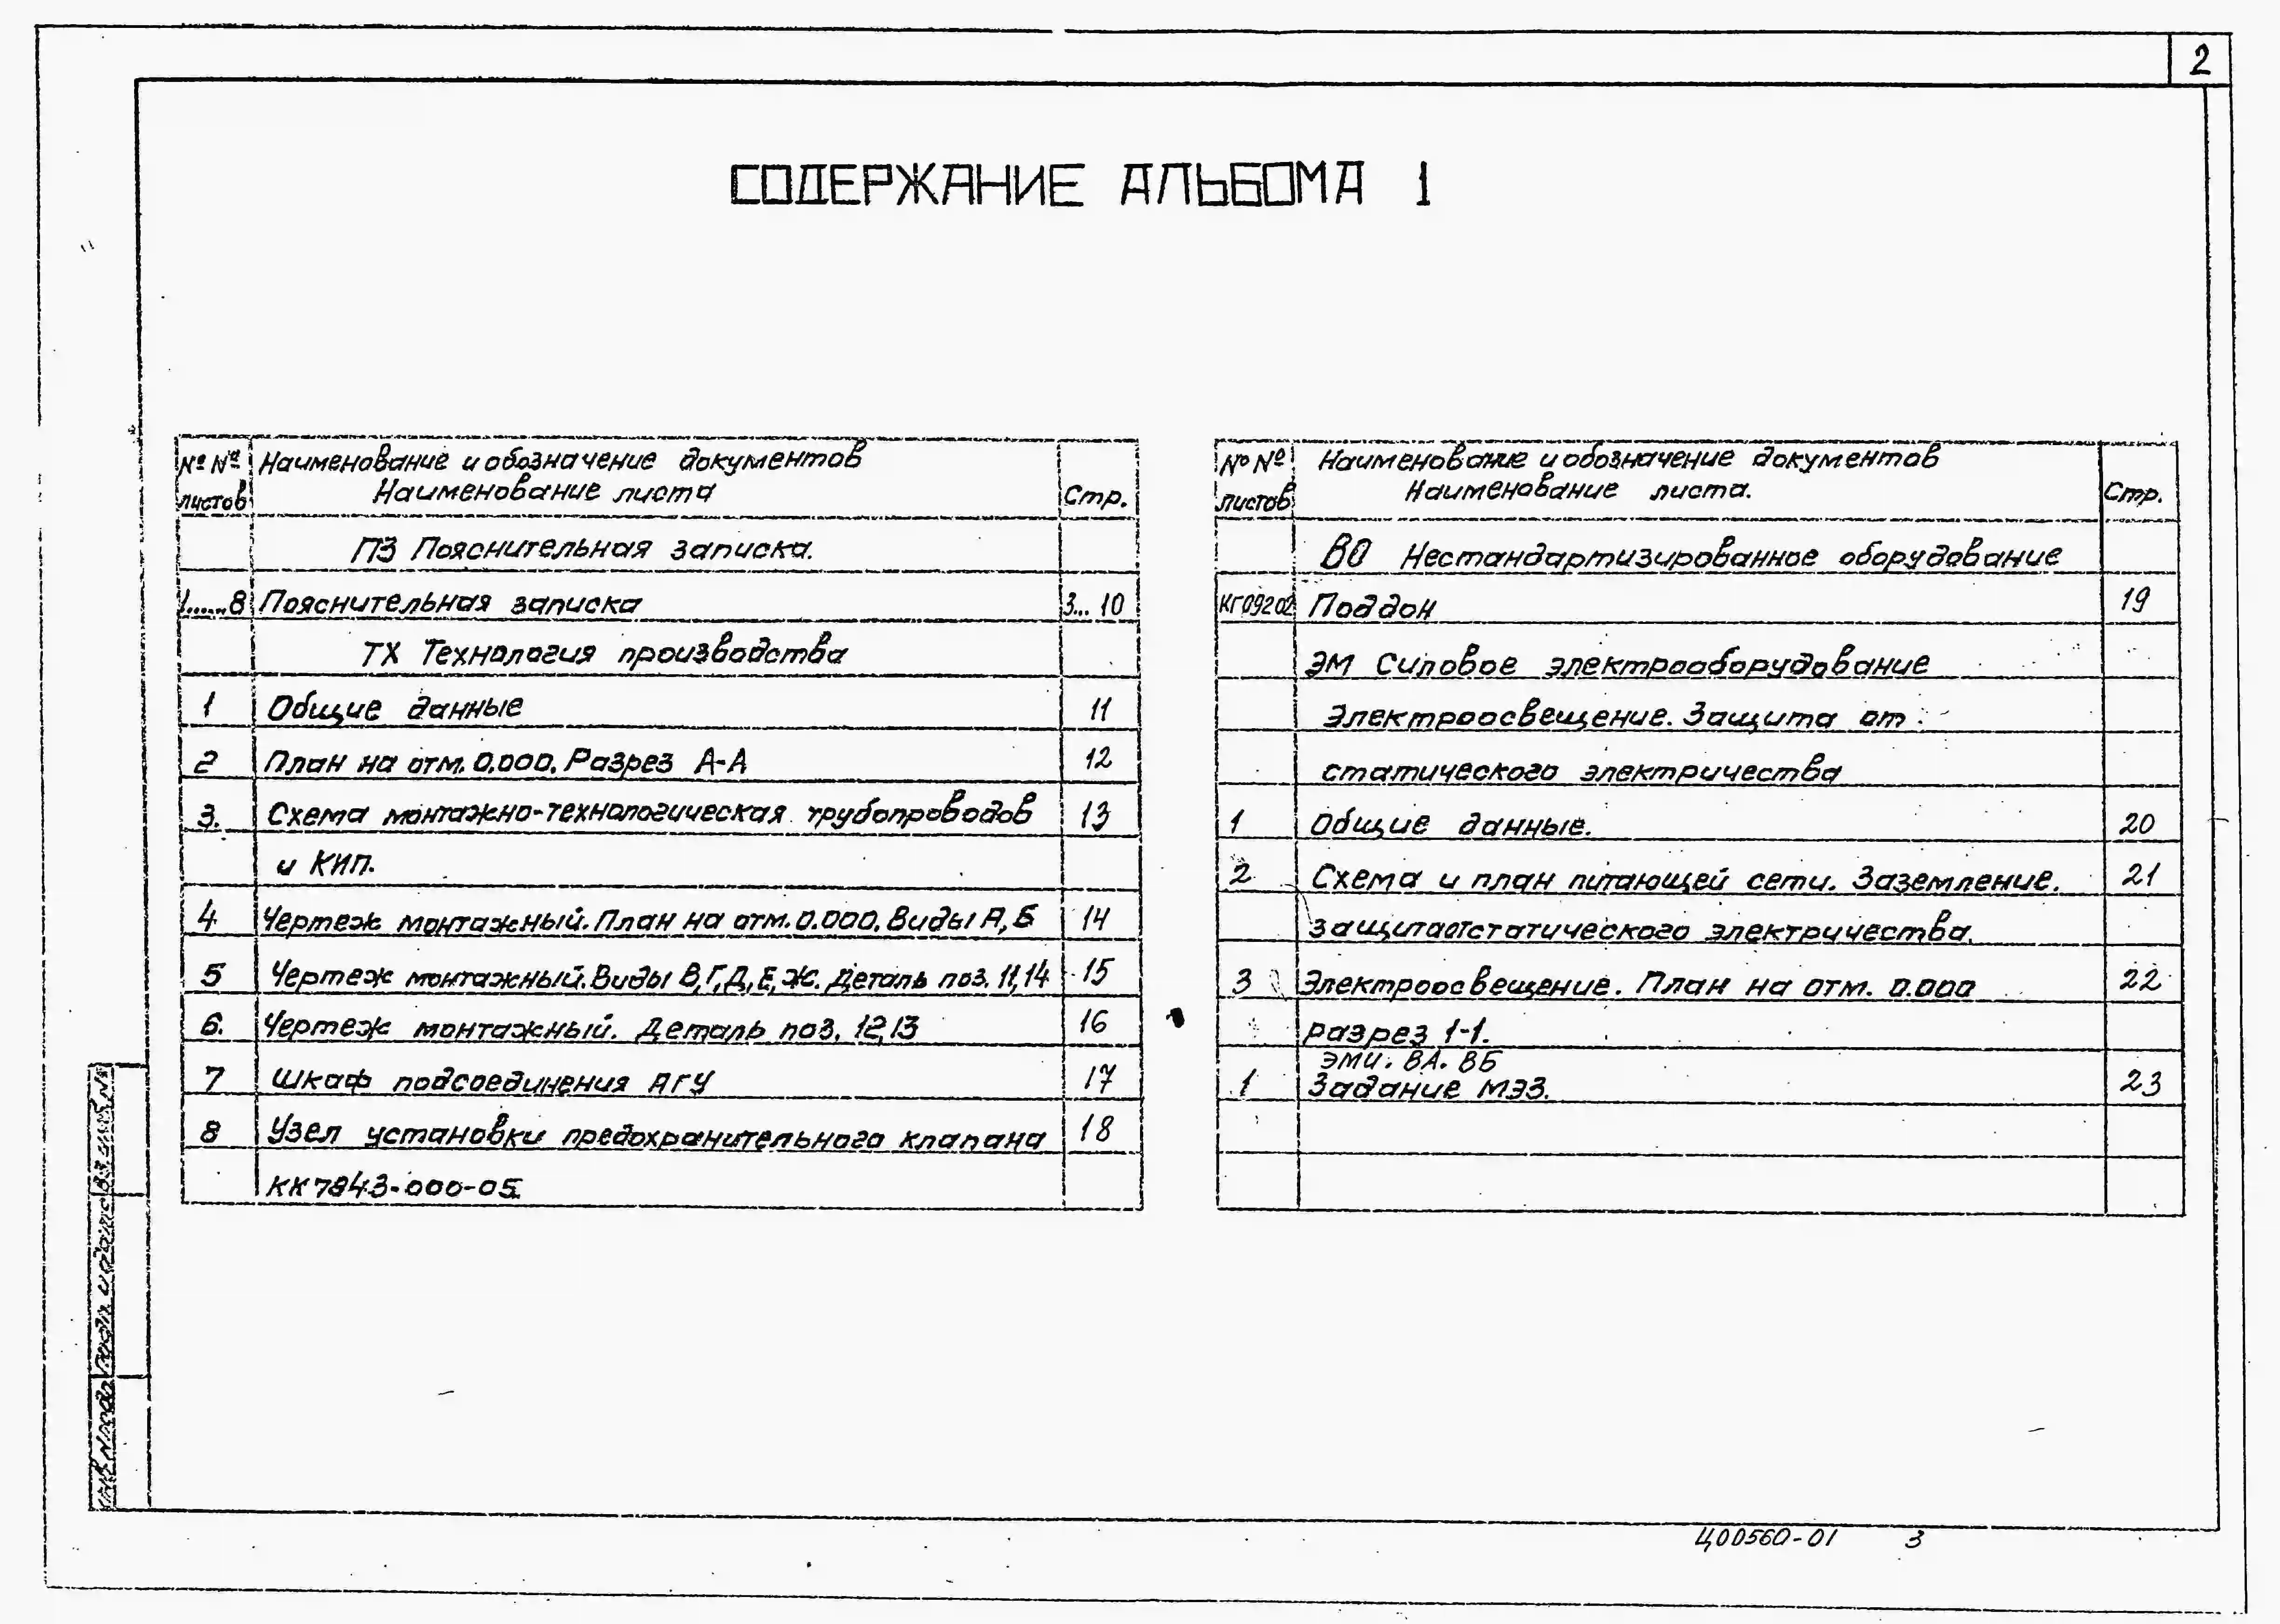 2
СОДЕРЖАНИЕ АЛЬБОМА 1
№ №
листов
Наименование и обозначение документов
Наименование листа
Стр.
ПЗ Пояснительная записка.
1......8 Пояснительная записка 3... 10
ТХ Технология производства
1 Общие данные 11
2 План на отм. 0.000. Разрез А-А 12
3. Схема монтажно-технологическая трубопроводов 13
и КИП.
4 Чертеж монтажный. План на отм. 0.000. Виды А, Б 14
5 Чертеж монтажный. Виды В, Г, Д, Е, Ж. Деталь поз. 11,14 15
6. Чертеж монтажный. Деталь поз. 12,13 16
7 Шкаф подсоединения АГУ 17
8 Узел установки предохранительного клапана 18
КК 7843-000-05.
№ №
листов
Наименование и обозначение документов
Наименование листа.
Стр.
ВО Нестандартизированное оборудование
КГ09202 Поддон 19
ЭМ Силовое электрооборудование
Электроосвещение. Защита от
статического электричества
1 Общие данные. 20
2 Схема и план питающей сети. Заземление. 21
защита от статического электричества.
3 Электроосвещение. План на отм. 0.000 22
разрез 1-1.
ЭМИ. ВА. ВБ
1 Задание МЭЗ. 23
Ц00560-01 3